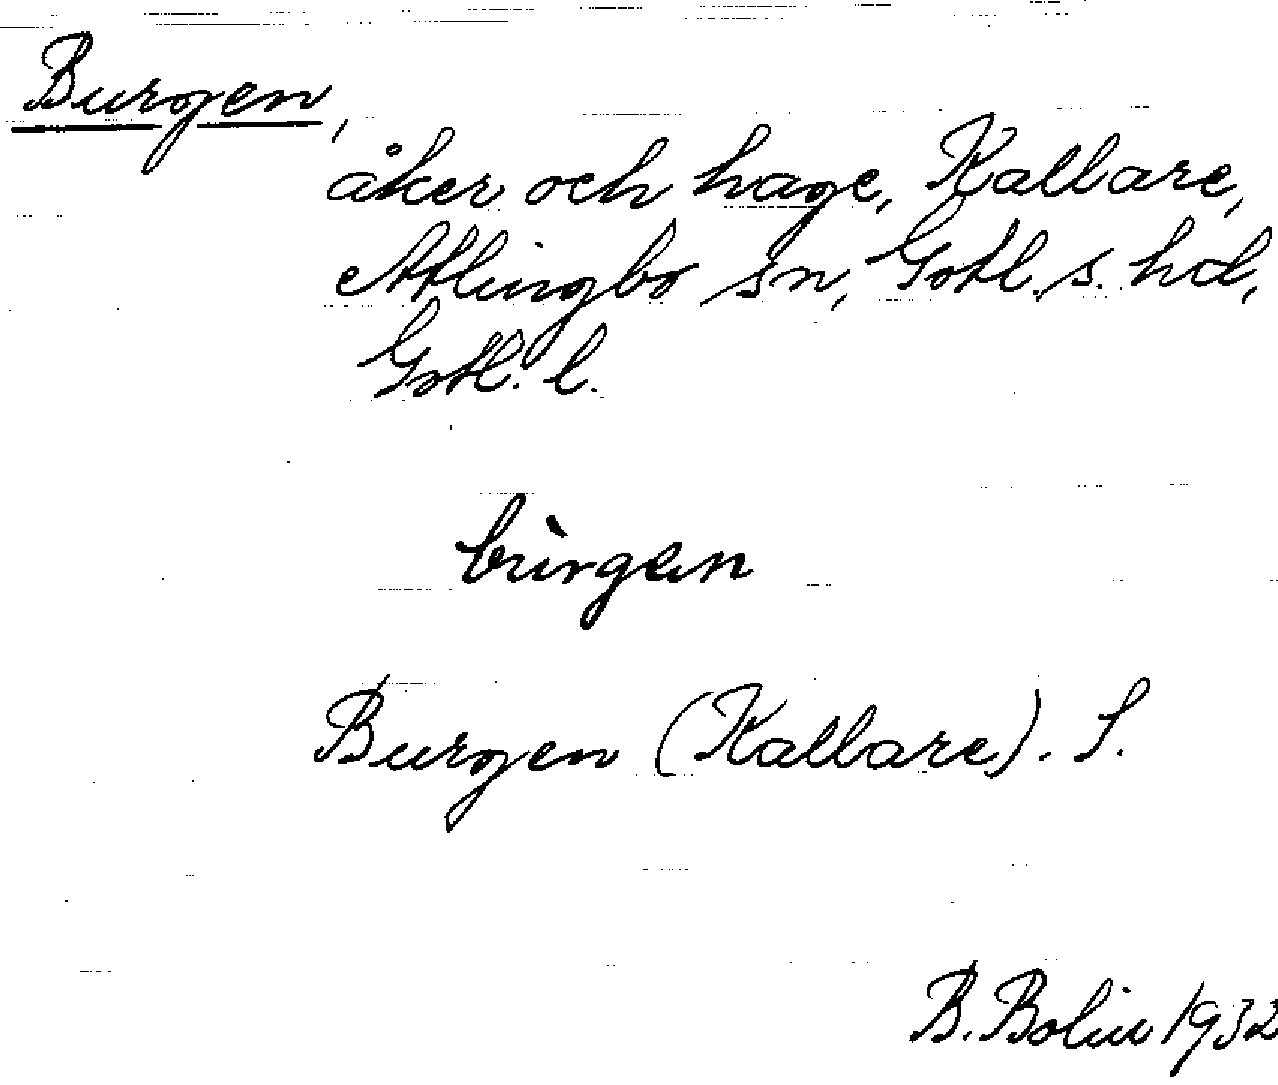 Burgen,
åker och hage, Kallare,
Atlingbo sn, Gotl. s. hd,
Gotl. l.
bùrgen
Burgen (Kallare). S.
B. Bolin 1932